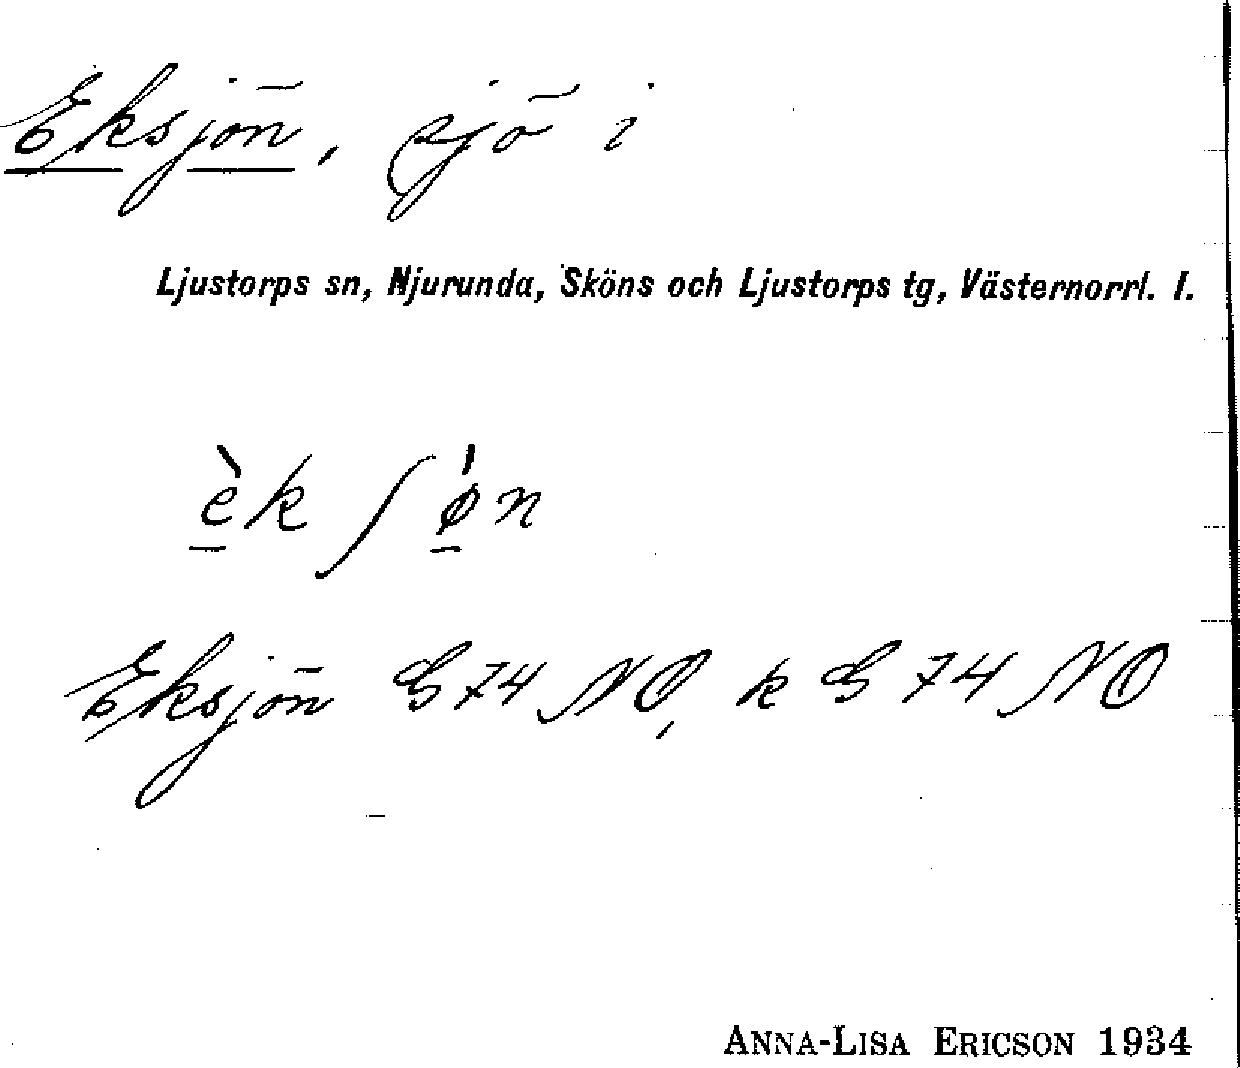 Eksjön, sjö i
Ljustorps sn, Njurunda, Sköns och Ljustorps tg, Västernorrl. l.
è̱kʃǿ̱n
Eksjön G 74 NO, k G 74 NO
ANNA-LISA ERICSON 1934